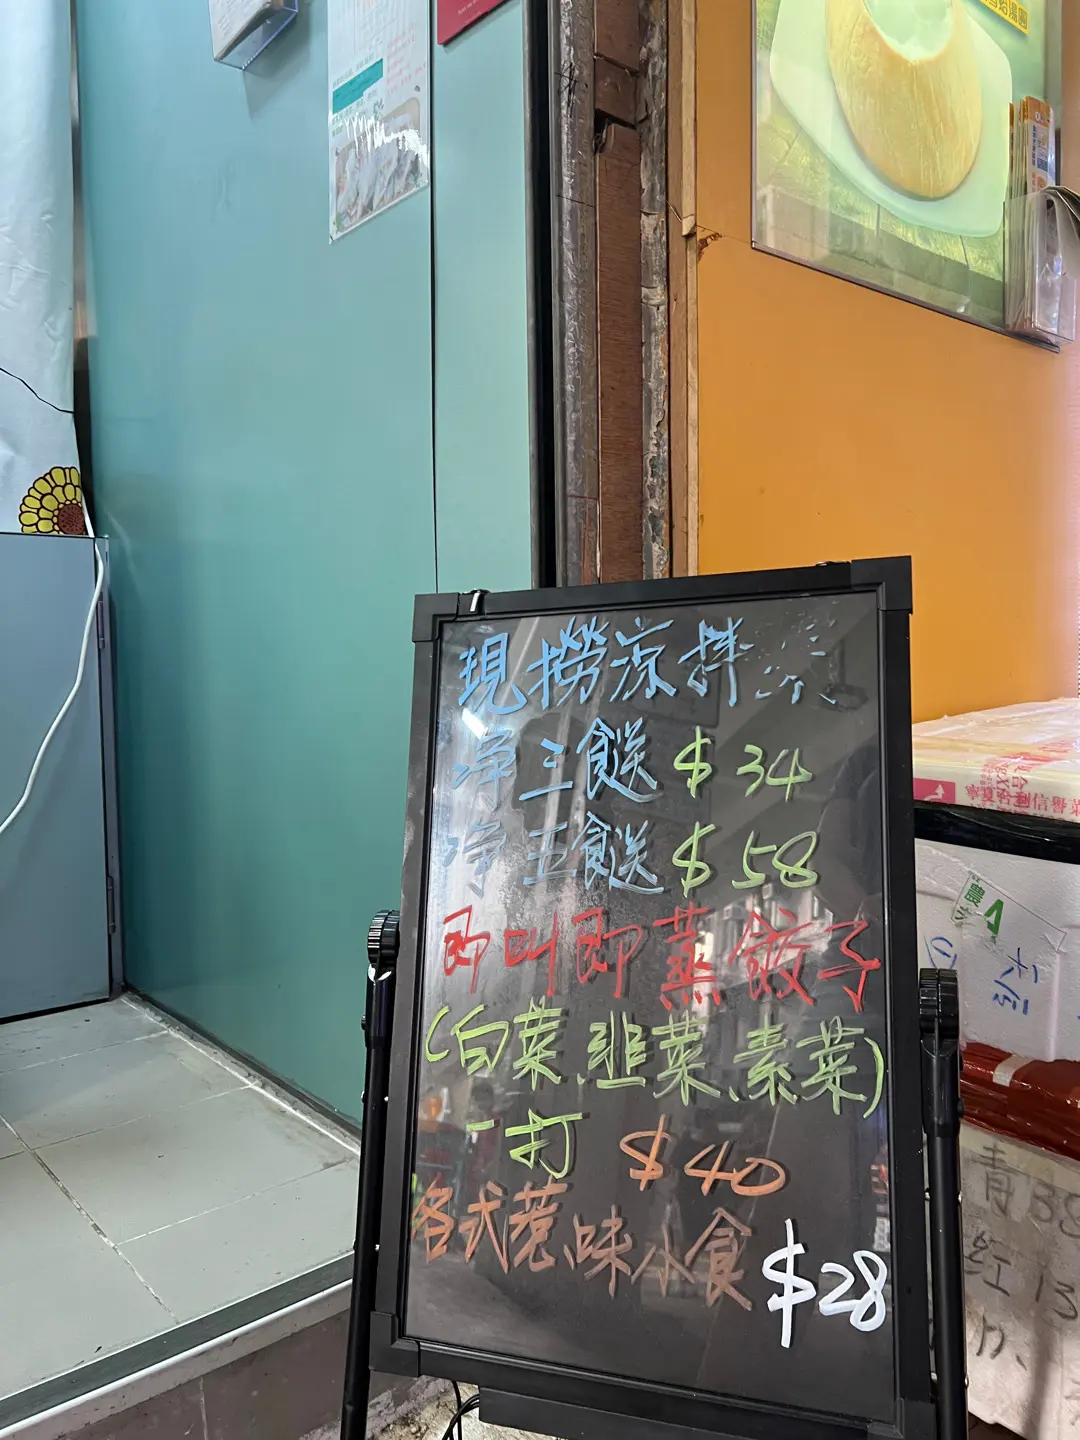 現撈涼拌
净三餸 $34
净五餸 $58
即叫即蒸餃子
(白菜、韮菜、素菜)
一打 $40
各式惹味小食 $28
青38
紅13